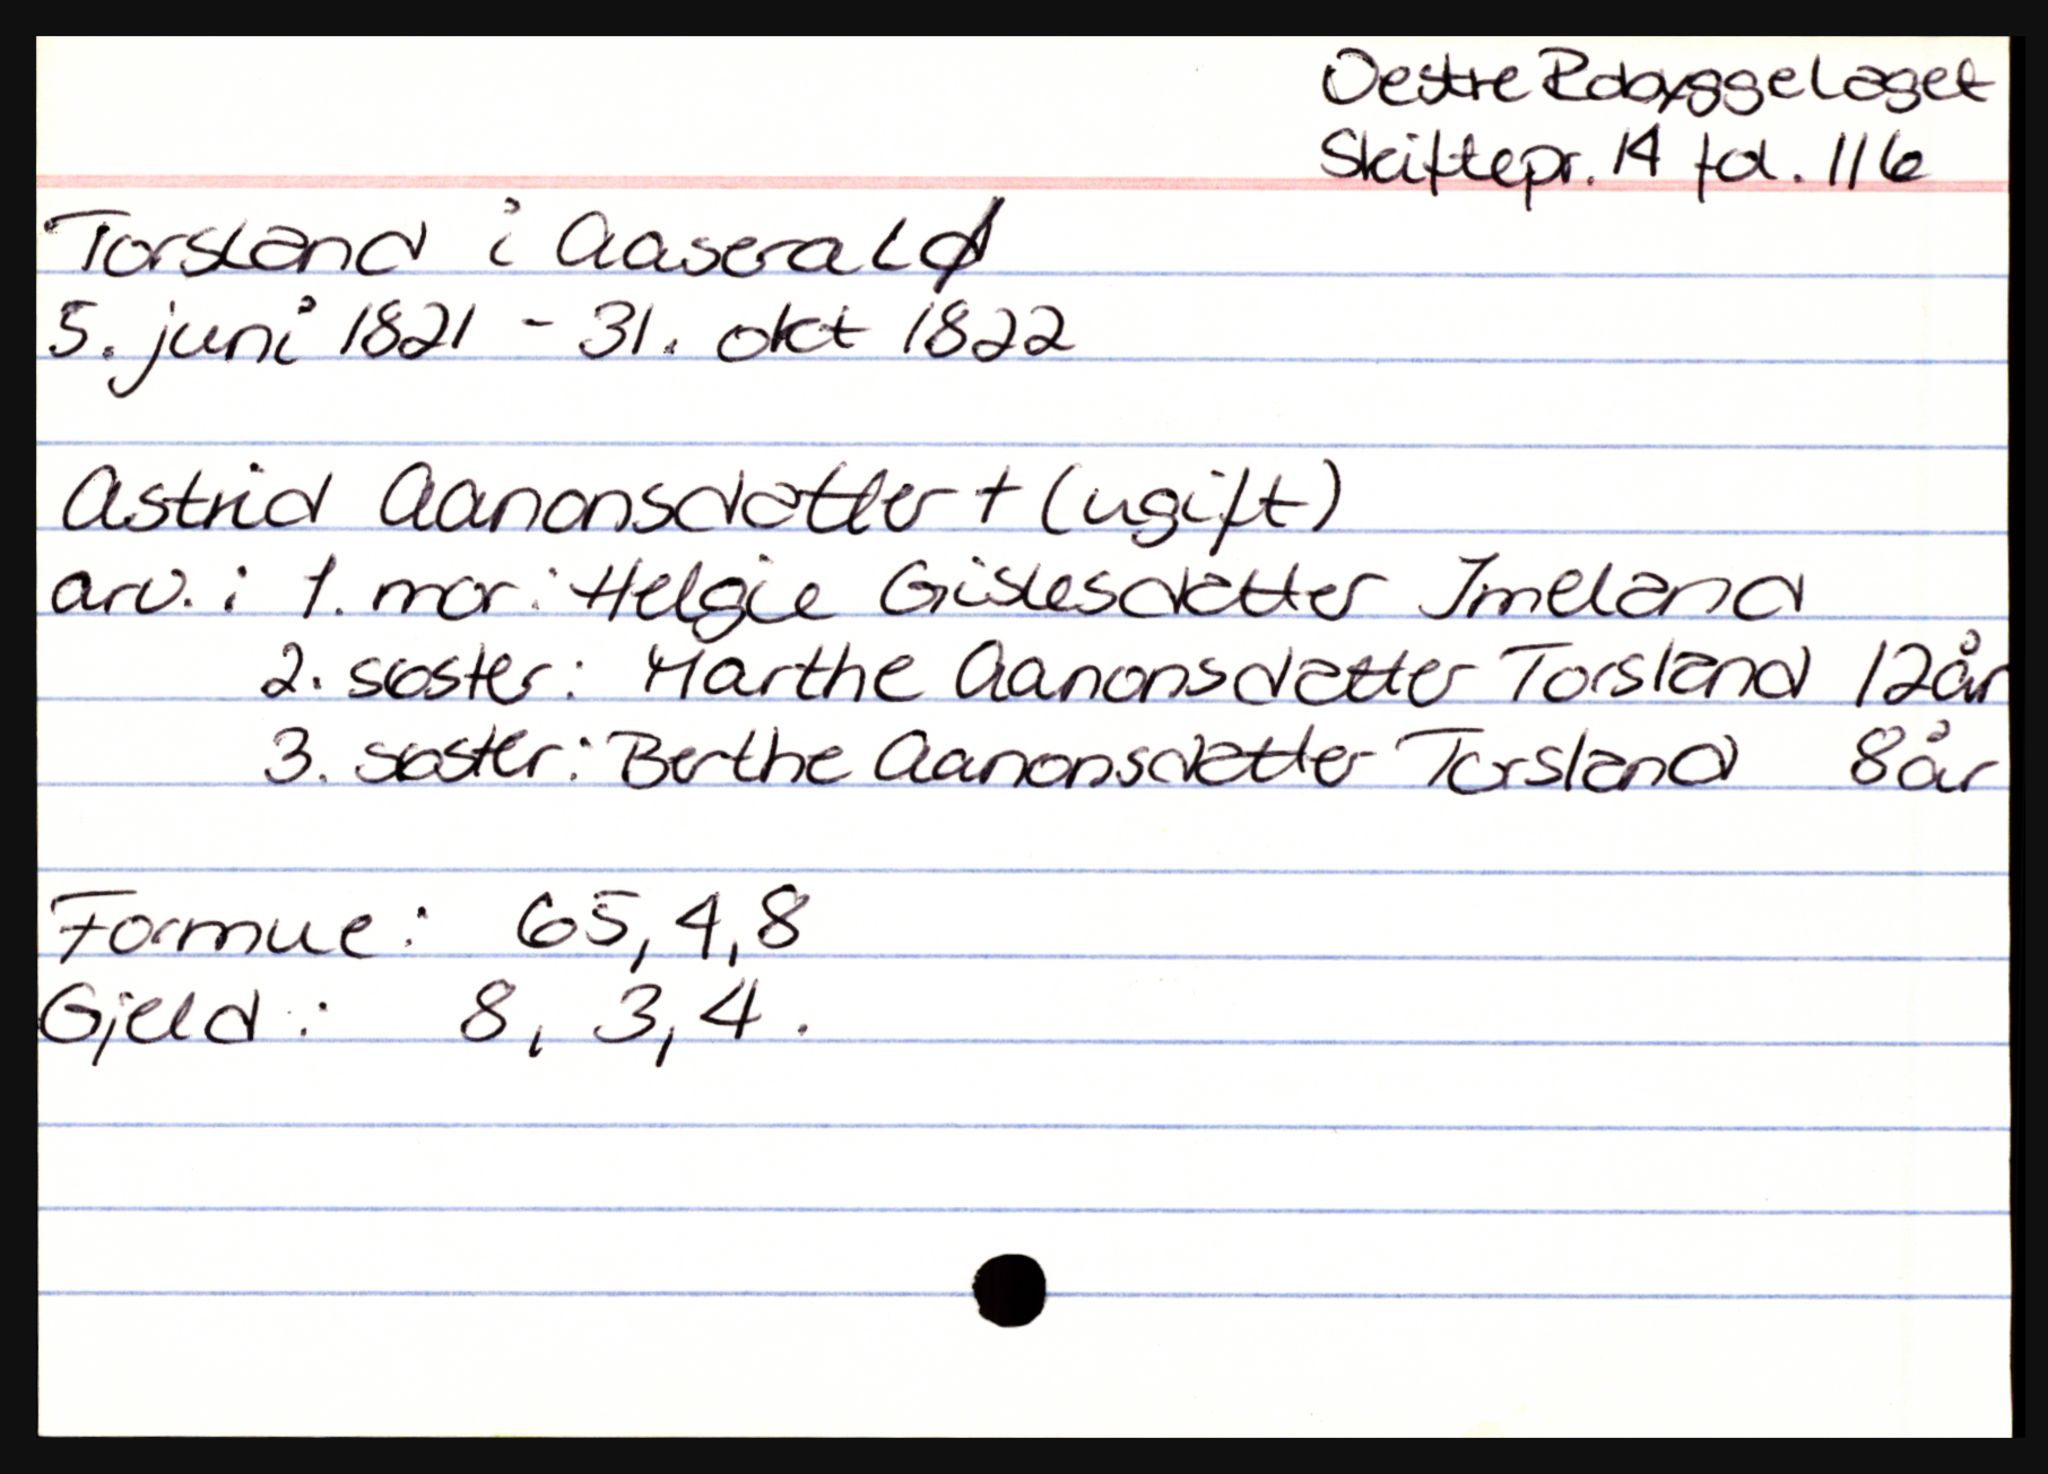 Oestre Robyggelaget
Skiftepr. 14 fol. 116
Torsland i Aaserald
5. juni 1821 - 31. okt 1822
Astrid Aanonsdatter + (ugift)
arv. : 1. mor: Helgie Gislesdatter Imeland
2. søster: Marthe Aanonsdatter Torsland 12år
3. søster: Berthe Aanonsdatter Torsland 8år
Formue: 65,4,8
Gjeld: 8, 3,4.